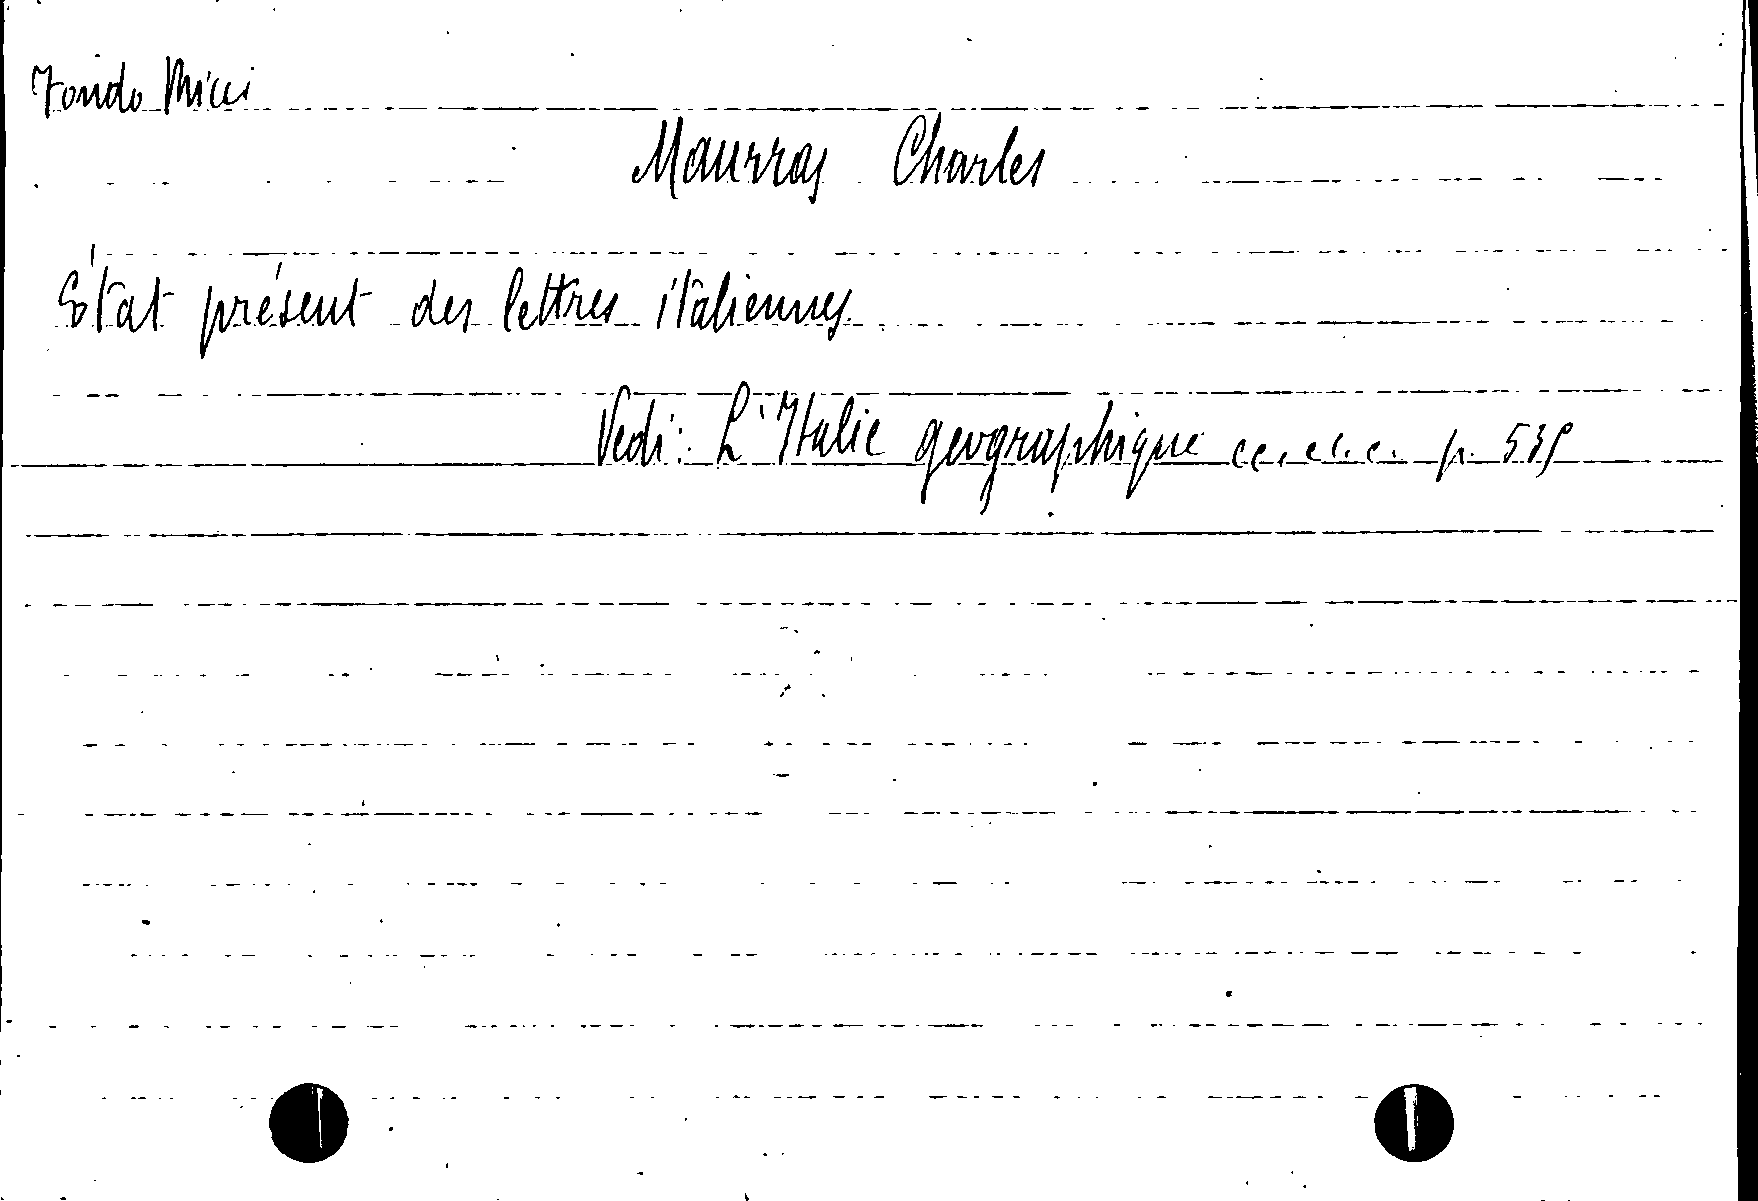 Fondo Ricci
Maurras Charles
État présent des lettres italiennes
Vedi: L'Italie geographique ec. ec. c. p. 539